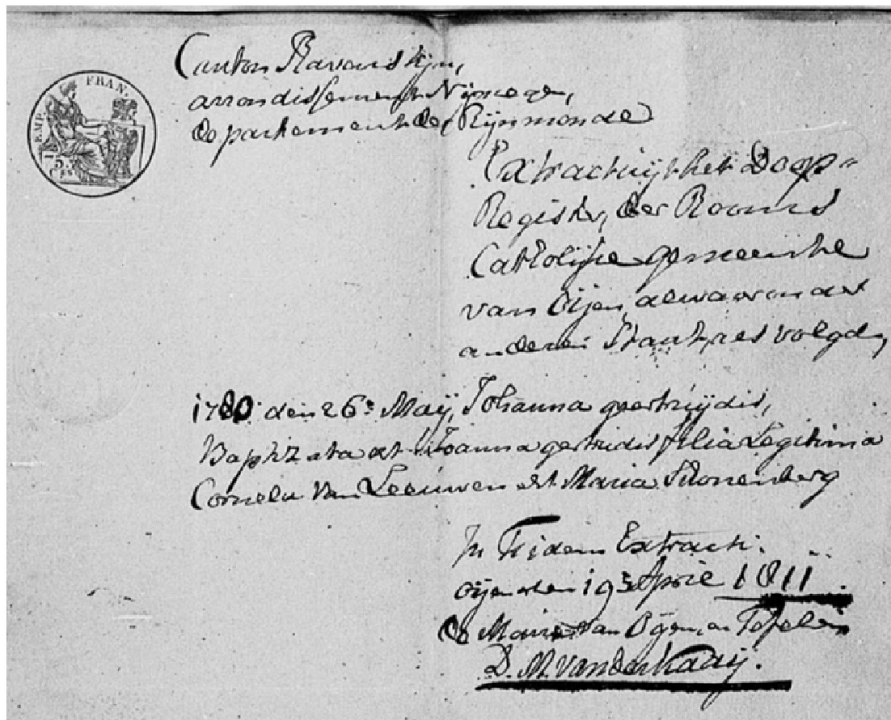 EMP. FRAN.
Canton Ravensteijn,
arrondissement Nijmege,
departement der Rijnmonde
Extract uijt het Doop-
Register, der Rooms
Catholijke gemeente
van Oijen, alwaar onder
anderen Staat, als volgd,
1780 den 26e Maij, Johanna geertruijdis,
Baptizata est Joanna gertrudis filia Legitima
Corneli Van Leeuwen et Maria
In Fidem Extracti.
Oijen den 19e April 1811.
de Maire van Oijen, en Tefelen
D. M. van der